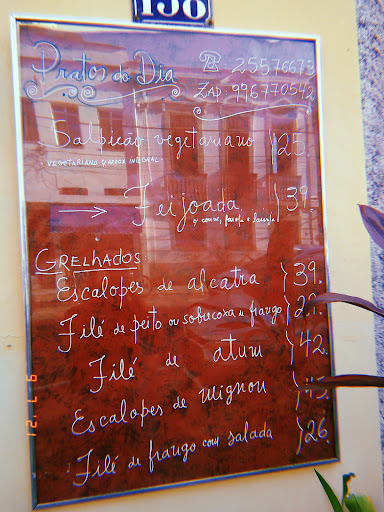 158
Pratos do Dia
☎: 25576673
ZAP: 996770542
Salpicão vegetariano } 25.
- VEGETARIANO C/ ARROZ INTEGRAL -
→ Feijoada } 39
c/ couve, farofa e laranja
GRELHADOS:
Escalopes de alcatra } 39.
Filé de peito ou sobrecoxa de frango }
Filé de atum } 42.
Escalopes de mignon }
Filé de frango com salada } 26.